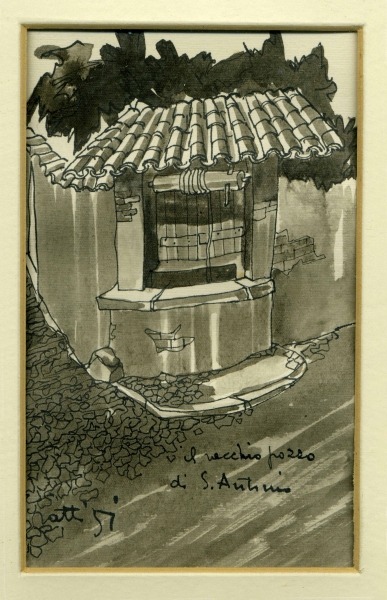 il vecchio pozzo
di S. Antonio